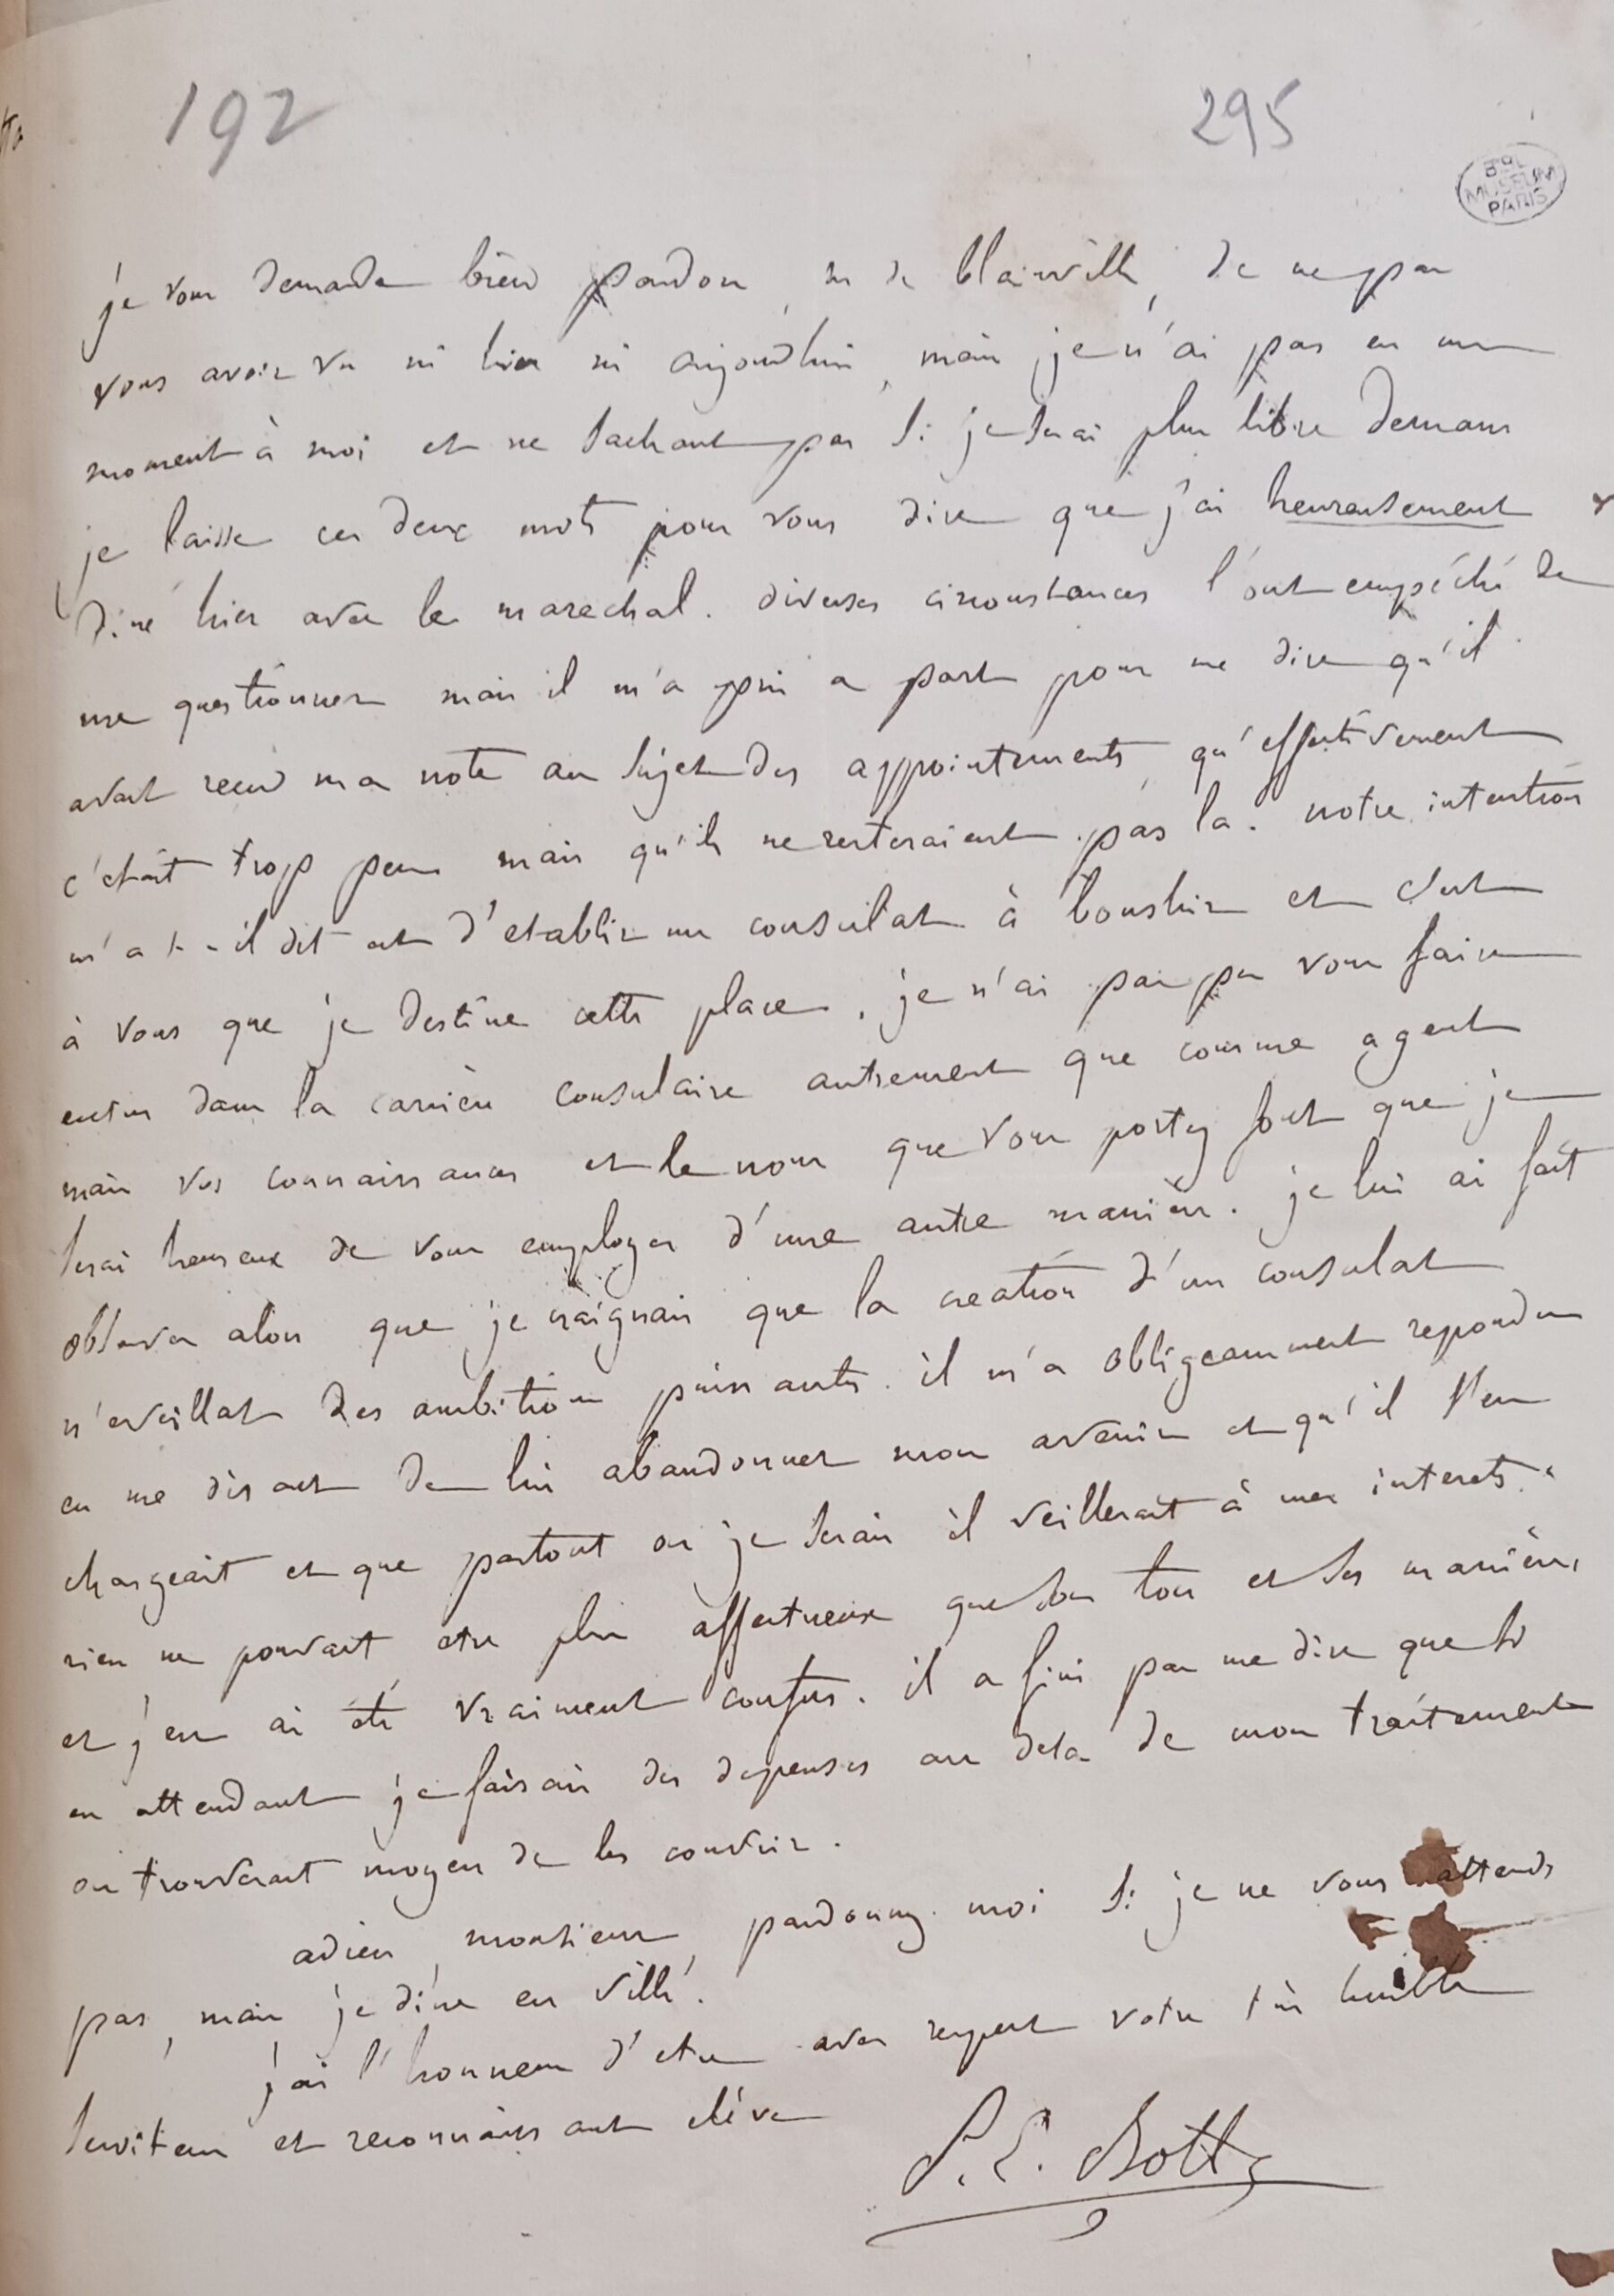 192
295
BIBL
MUSEUM
PARIS
je vous demande bien pardon, m de blainville, de ne pas
vous avoir vu ni hier ni aujourdhui, mais je n'ai pas eu un
moment à moi et ne sachant pas si je serai plus libre demain
je laisse ces deux mots pour vous dire que j'ai heureusement
diné hier avec le marechal. diverses circonstances l'ont empéché de
me questionner mais il m'a pris a part pour me dire qu'il
avait recu ma note au sujet des appointements, qu'effectivement
c'etait trop peu mais qu'ils ne resteraient pas la. notre intention
m'a t-il dit est d'etablir un consulat à boushir et c'est
à vous que je destine cette place. je n'ai pas pu vous faire
entrer dans la carrière consulaire autrement que comme agent
mais vos connaissances et le nom que vous portez font que je
serai heureux de vous employer d'une autre manière. je lui ai fait
observer alors que je craignais que la creation d'un consulat
n'eveillat des ambitions puissantes. il m'a obligeamment repondu
en me disant de lui abandonner mon avenir et qu'il s'en
chargeait et que partout ou je serais il veillerait à mes interets.
rien ne pouvait etre plus affectueux que son ton et ses manières,
et j'en ai été vraiment confus. il a fini par me dire que si
en attendant je faisais des depenses au dela de mon traitement
on trouverait moyen de les couvrir.
adieu, monsieur, pardonnez moi si je ne vous attends
pas, mais je dine en ville.
j'ai l'honneur d'etre avec respect votre très humble
serviteur et reconnaissant élève
P. E. Botta